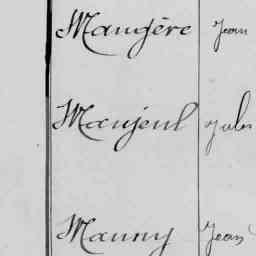 Maugère Jean
Maujeul Jules
Mauny Jean